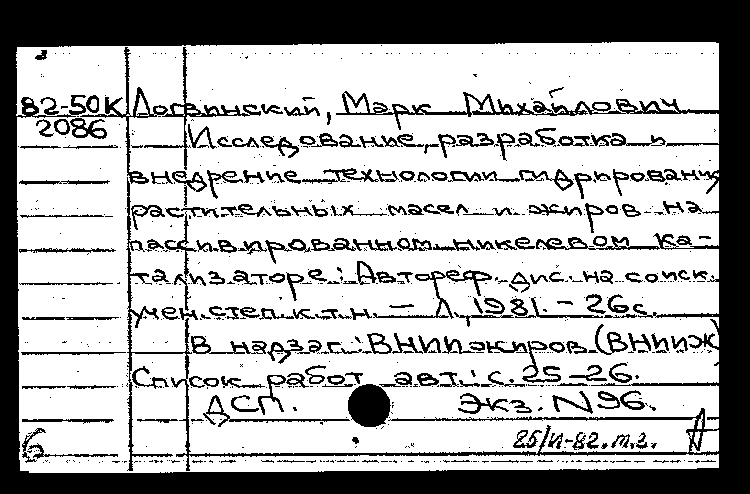 82-50К Логвинский, Марк Михайлович
2086 Исследование, разработка и
внедрение технологии гидрирования
растительных масел и жиров на
пассивированном никелевом ка-
тализаторе: Автореф. дис. на соиск.
учен. степ. к.т.н. — Л., 1981. - 26с.
В надзаг.: ВНИИжиров (ВНИИЖ)
Список работ авт.: с. 25-26.
ДСП. Экз. N 96.
6 25/VI-82. т.г.